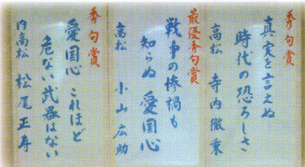 秀句賞
真実を言えぬ
時代の恐ろしさ
高松 寺内徹乗
最優秀句賞
戦争の惨禍も
知らぬ愛国心
高松 小山広助
秀句賞
愛国心これほど
危ない武器はない
内高松 松尾正寿